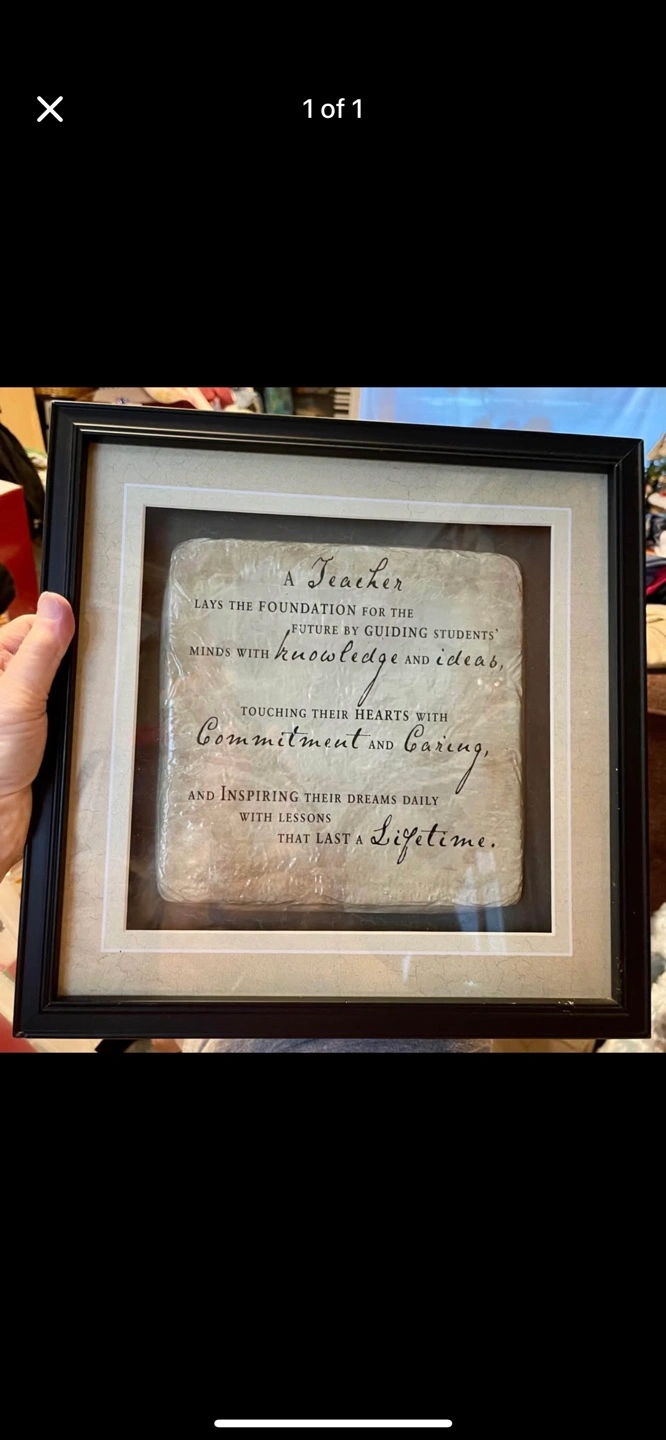 1 of 1
A Teacher
LAYS THE FOUNDATION FOR THE
FUTURE BY GUIDING STUDENTS'
MINDS WITH knowledge AND ideas,
TOUCHING THEIR HEARTS WITH
Commitment AND Caring,
AND INSPIRING THEIR DREAMS DAILY
WITH LESSONS
THAT LAST A Lifetime.